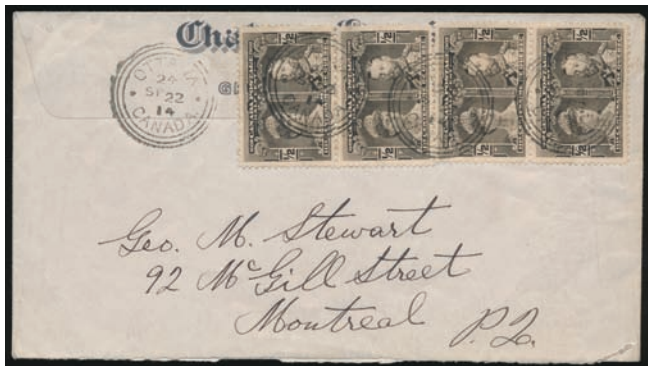 Cha
½ ½ ½ ½
OTTAWA
24
SP 22
14
CANADA
½ ½ ½ ½
Geo. M. Stewart
92 McGill Street
Montreal P.Q.